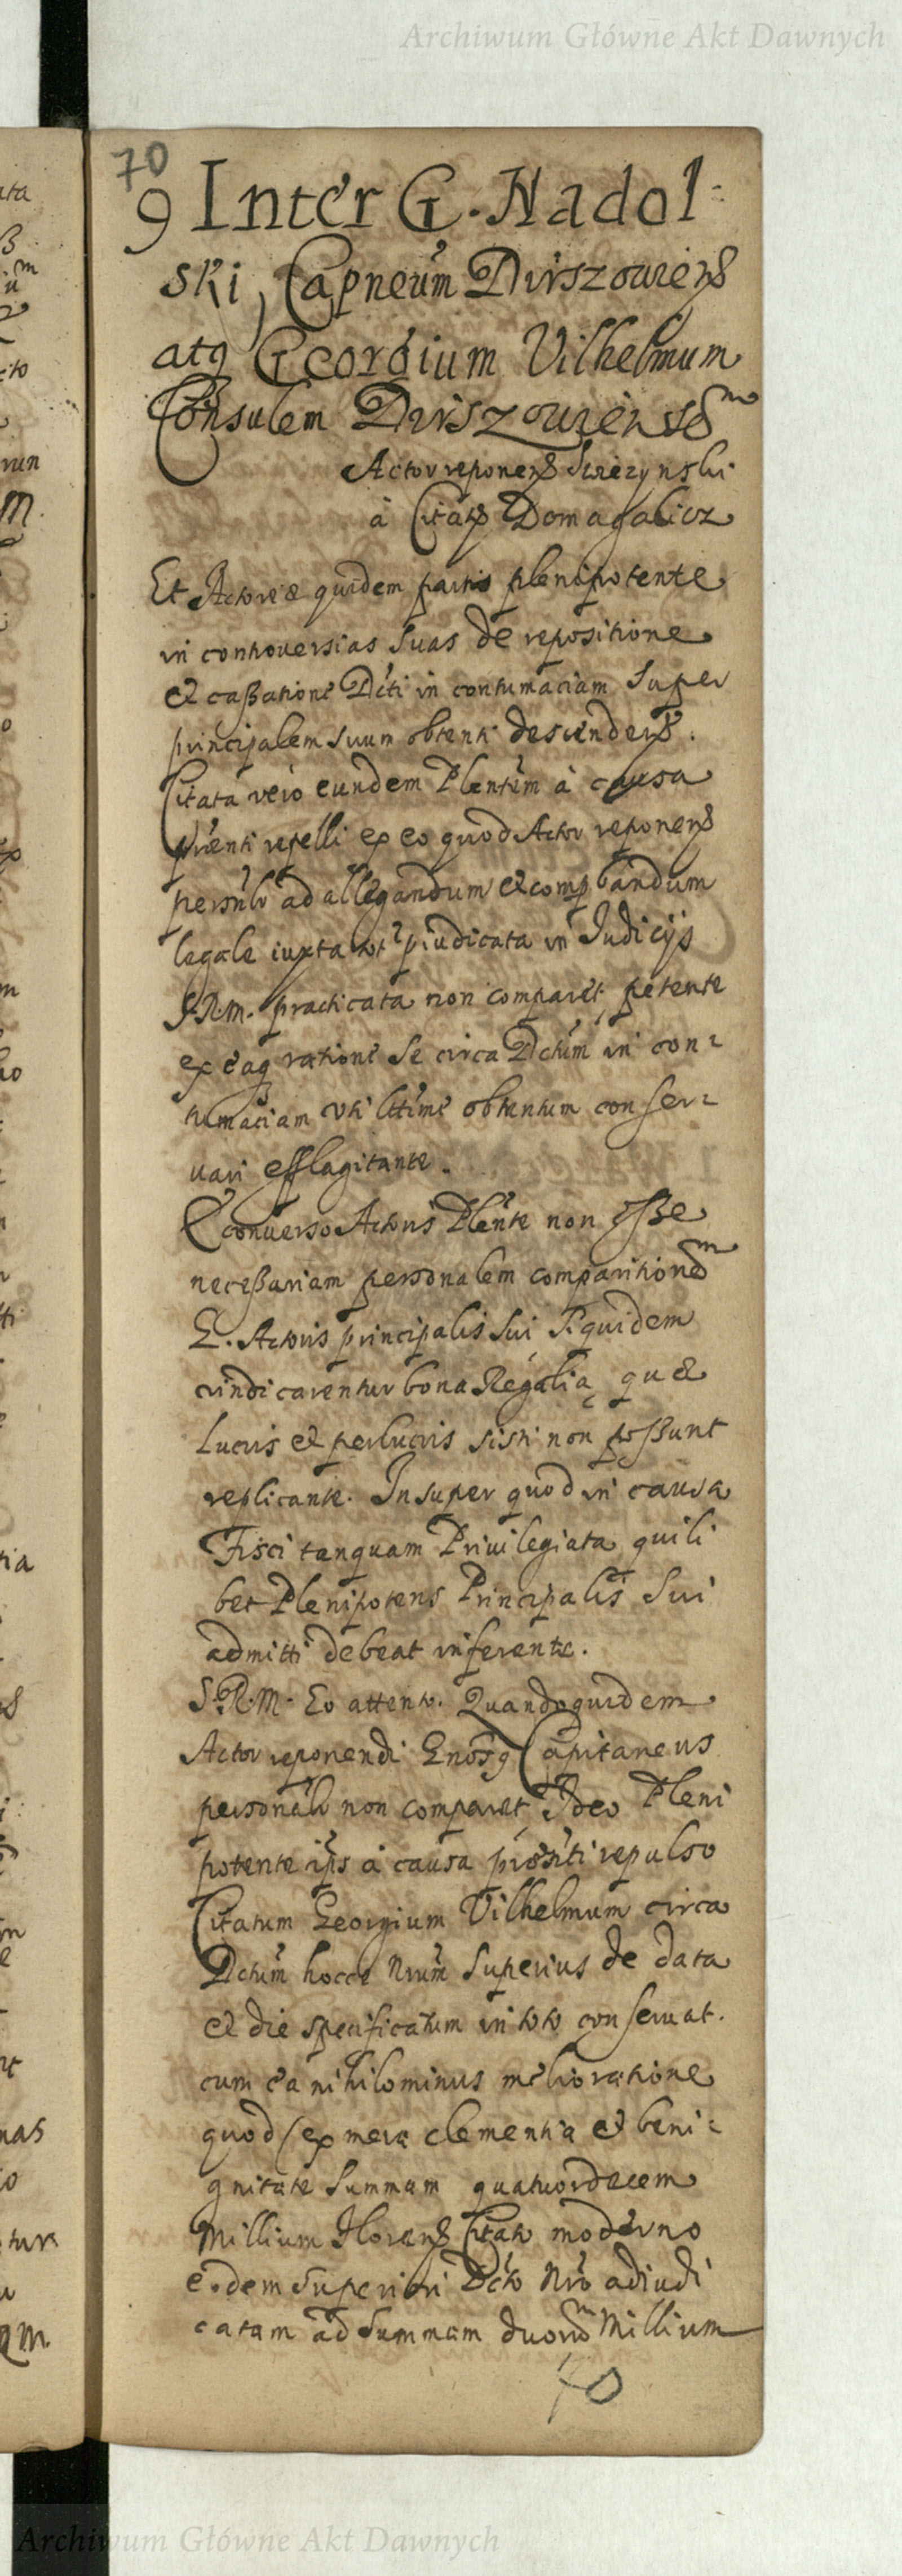 Archiwum Główne Akt Dawnych
70
9 Inter G. Nadol-
ski, Capneum Dirszoviens
atq Georgium Vilhelmum
Consulem Dirszoviensem
Actor reponens
à Citatis Domagalicz
Et Actoreæ quidem partis plenipotente
in controversias suas de repositione
et caßatione Dcti in contumaciam super
principalem suum obtenti descendens.
Citata vero eundem Plentem à causa
prænti repelli ex eo quod Actor reponens
persnlr ad allegandum et comprbandum
legale iuxta tot præiudicata in Iudicijs
S.R.M. practicata non comparet, petente
ex eaq ratione se circa Dctum in con-
tumaciam uti lttime obtentum conser-
vari efflagitante.
E converso Actoris Plente non eße
neceßariam personalem comparitionem
G. Actoris principalis sui, siquidem
vindicarentur bona Regalia, quæ
Lucris et perlucris sisti non poßunt
replicante. Insuper quod in causa
Fisci tanquam Privilegiata quili
bet Plenipotens Principalis sui
admitti debeat inferente.
S.R.M. Eo attento. Quandoquidem
Actor reponendi Gnosq Capitaneus
personalr non comparet, Ideo Pleni
potente ips à causa præsnti repulso
Citatum Georgium Vilhelmum circa
Dctum hocce Nrum superius de data
et die specificatum in toto conservat.
cum ea nihilominus melioratione
quod ex mera clementia et beni-
gnitate summam quatuordecem
Millium Florens Citato moderno
eodem superiori Dcto Nro adiudi
catam ad summam duorum Millium
70
Archiwum Główne Akt Dawnych